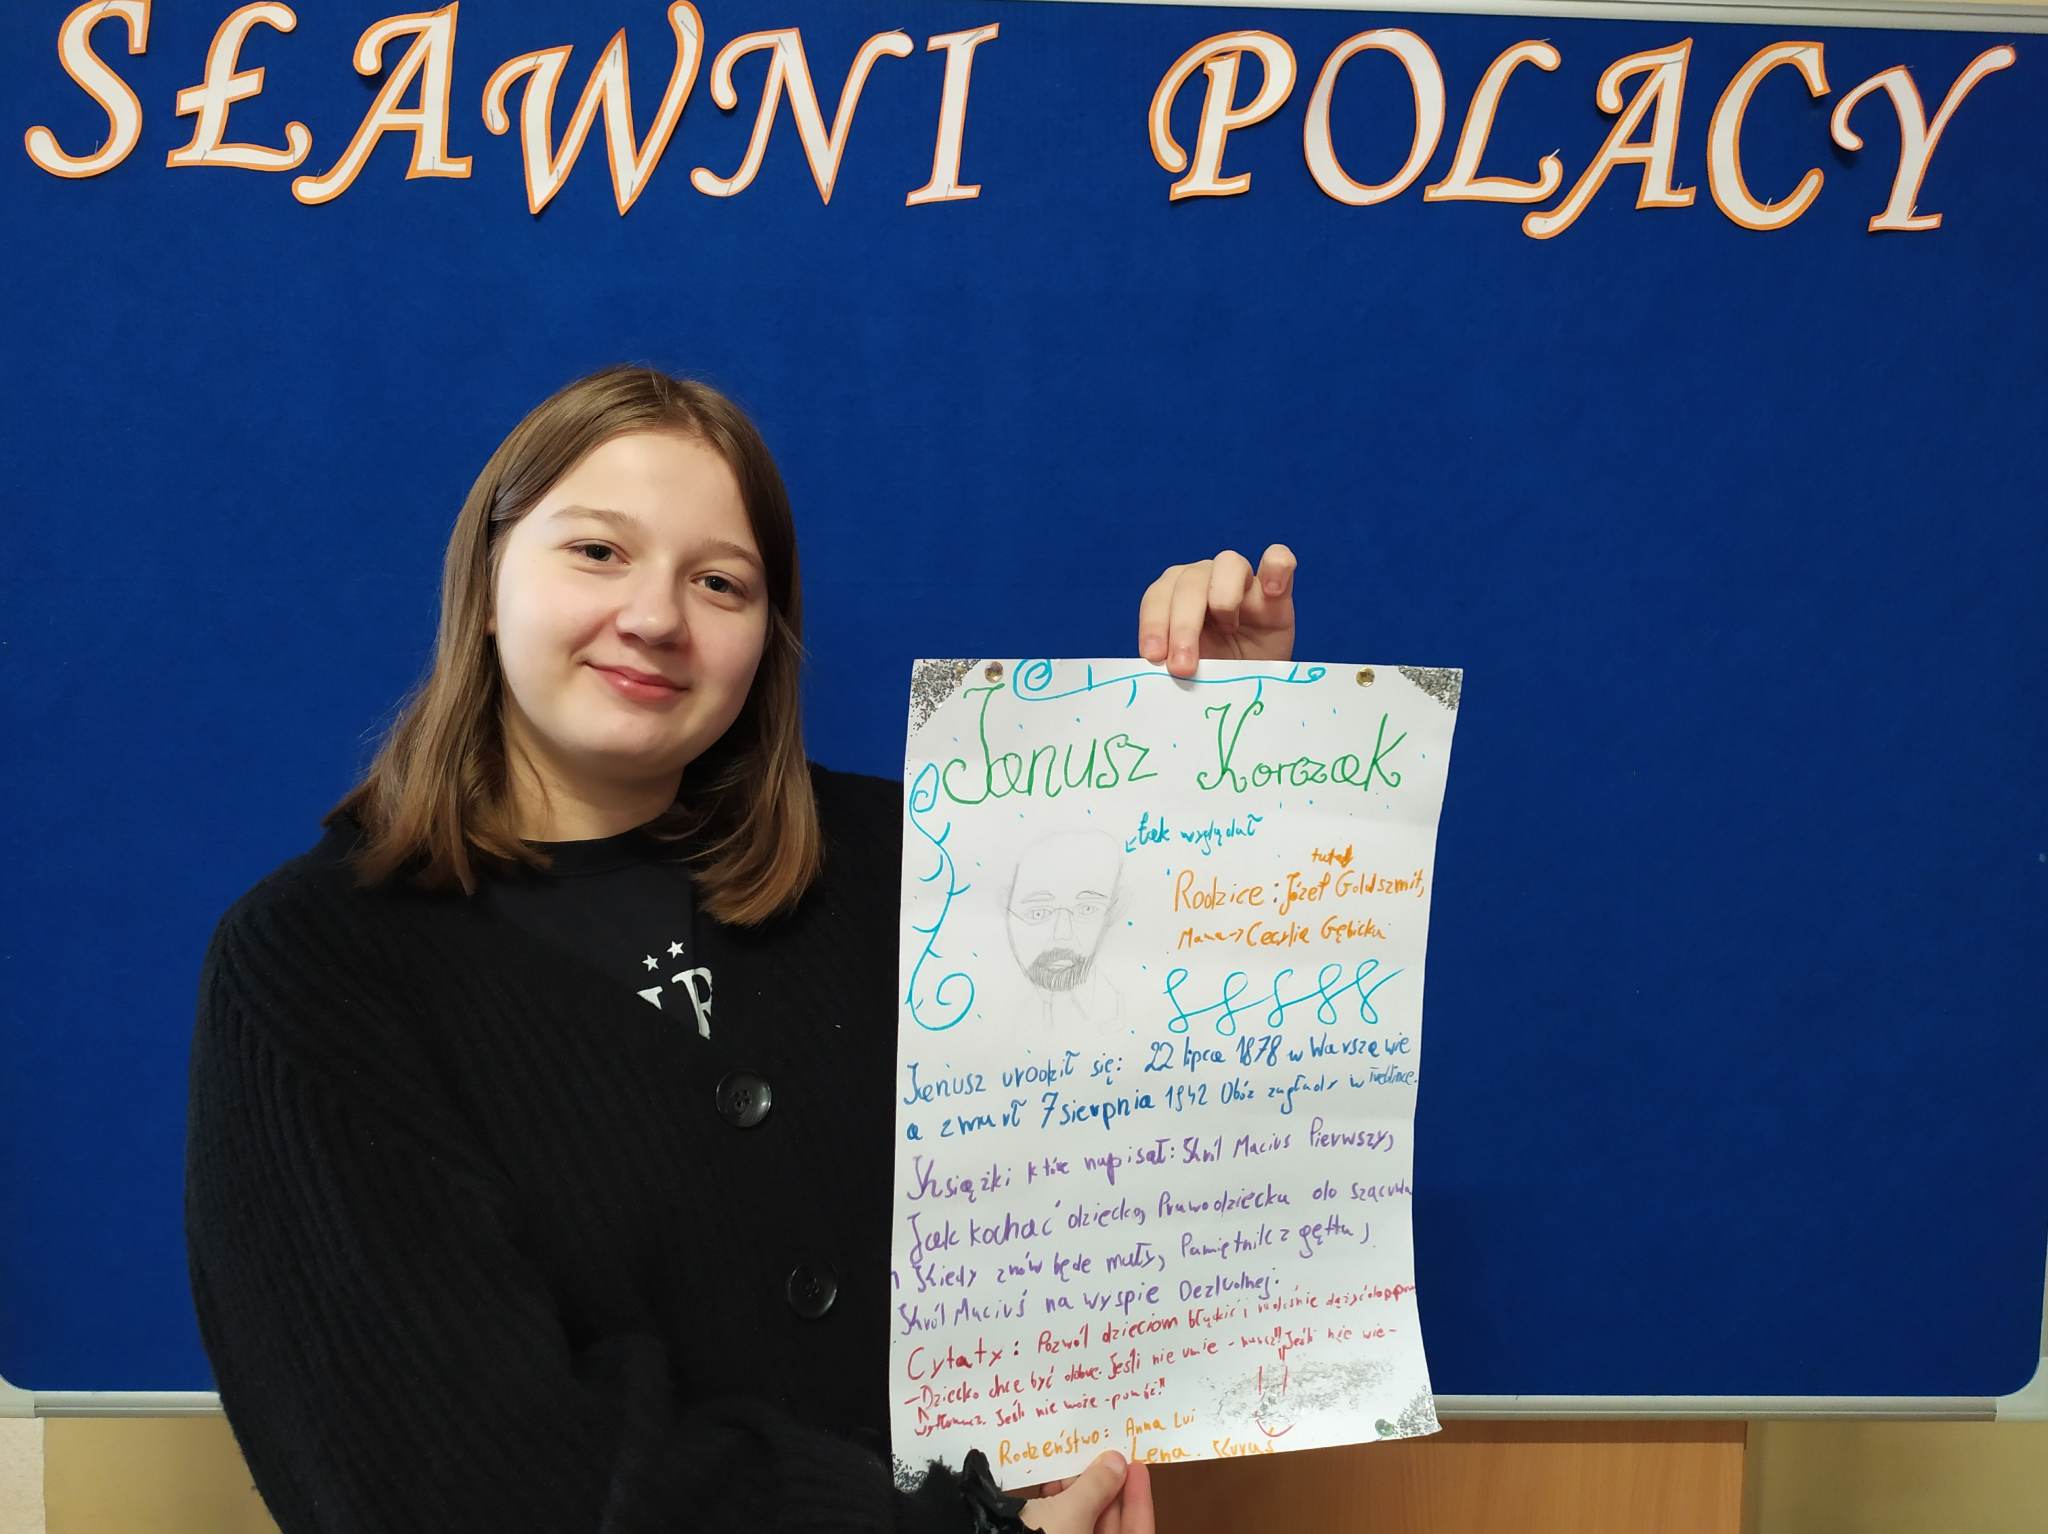 SŁAWNI POLACY
Janusz Korczak
tak wyglądał
tata
Rodzice: Józef Goldszmit,
Mama → Cecylia Gębicka
Janusz urodził się: 22 lipca 1878 w Warszawie
a zmarł 7 sierpnia 1942 Obóz zagłady w
Książki które napisał: Król Maciuś Pierwszy,
Jak kochać dziecko, Prawo dziecka do szacunku
Kiedy znów będę mały, Pamiętnik z getta,
Król Maciuś na wyspie Bezludnej.
Cytaty: Pozwól dzieciom błądzić i radośnie dążyć do
- Dziecko chce być dobre. Jeśli nie umie - naucz" Jeśli nie wie -
wytłumacz. Jeśli nie może - pomóż!"
Rodzeństwo: Anna Lui
Lena Kuraś